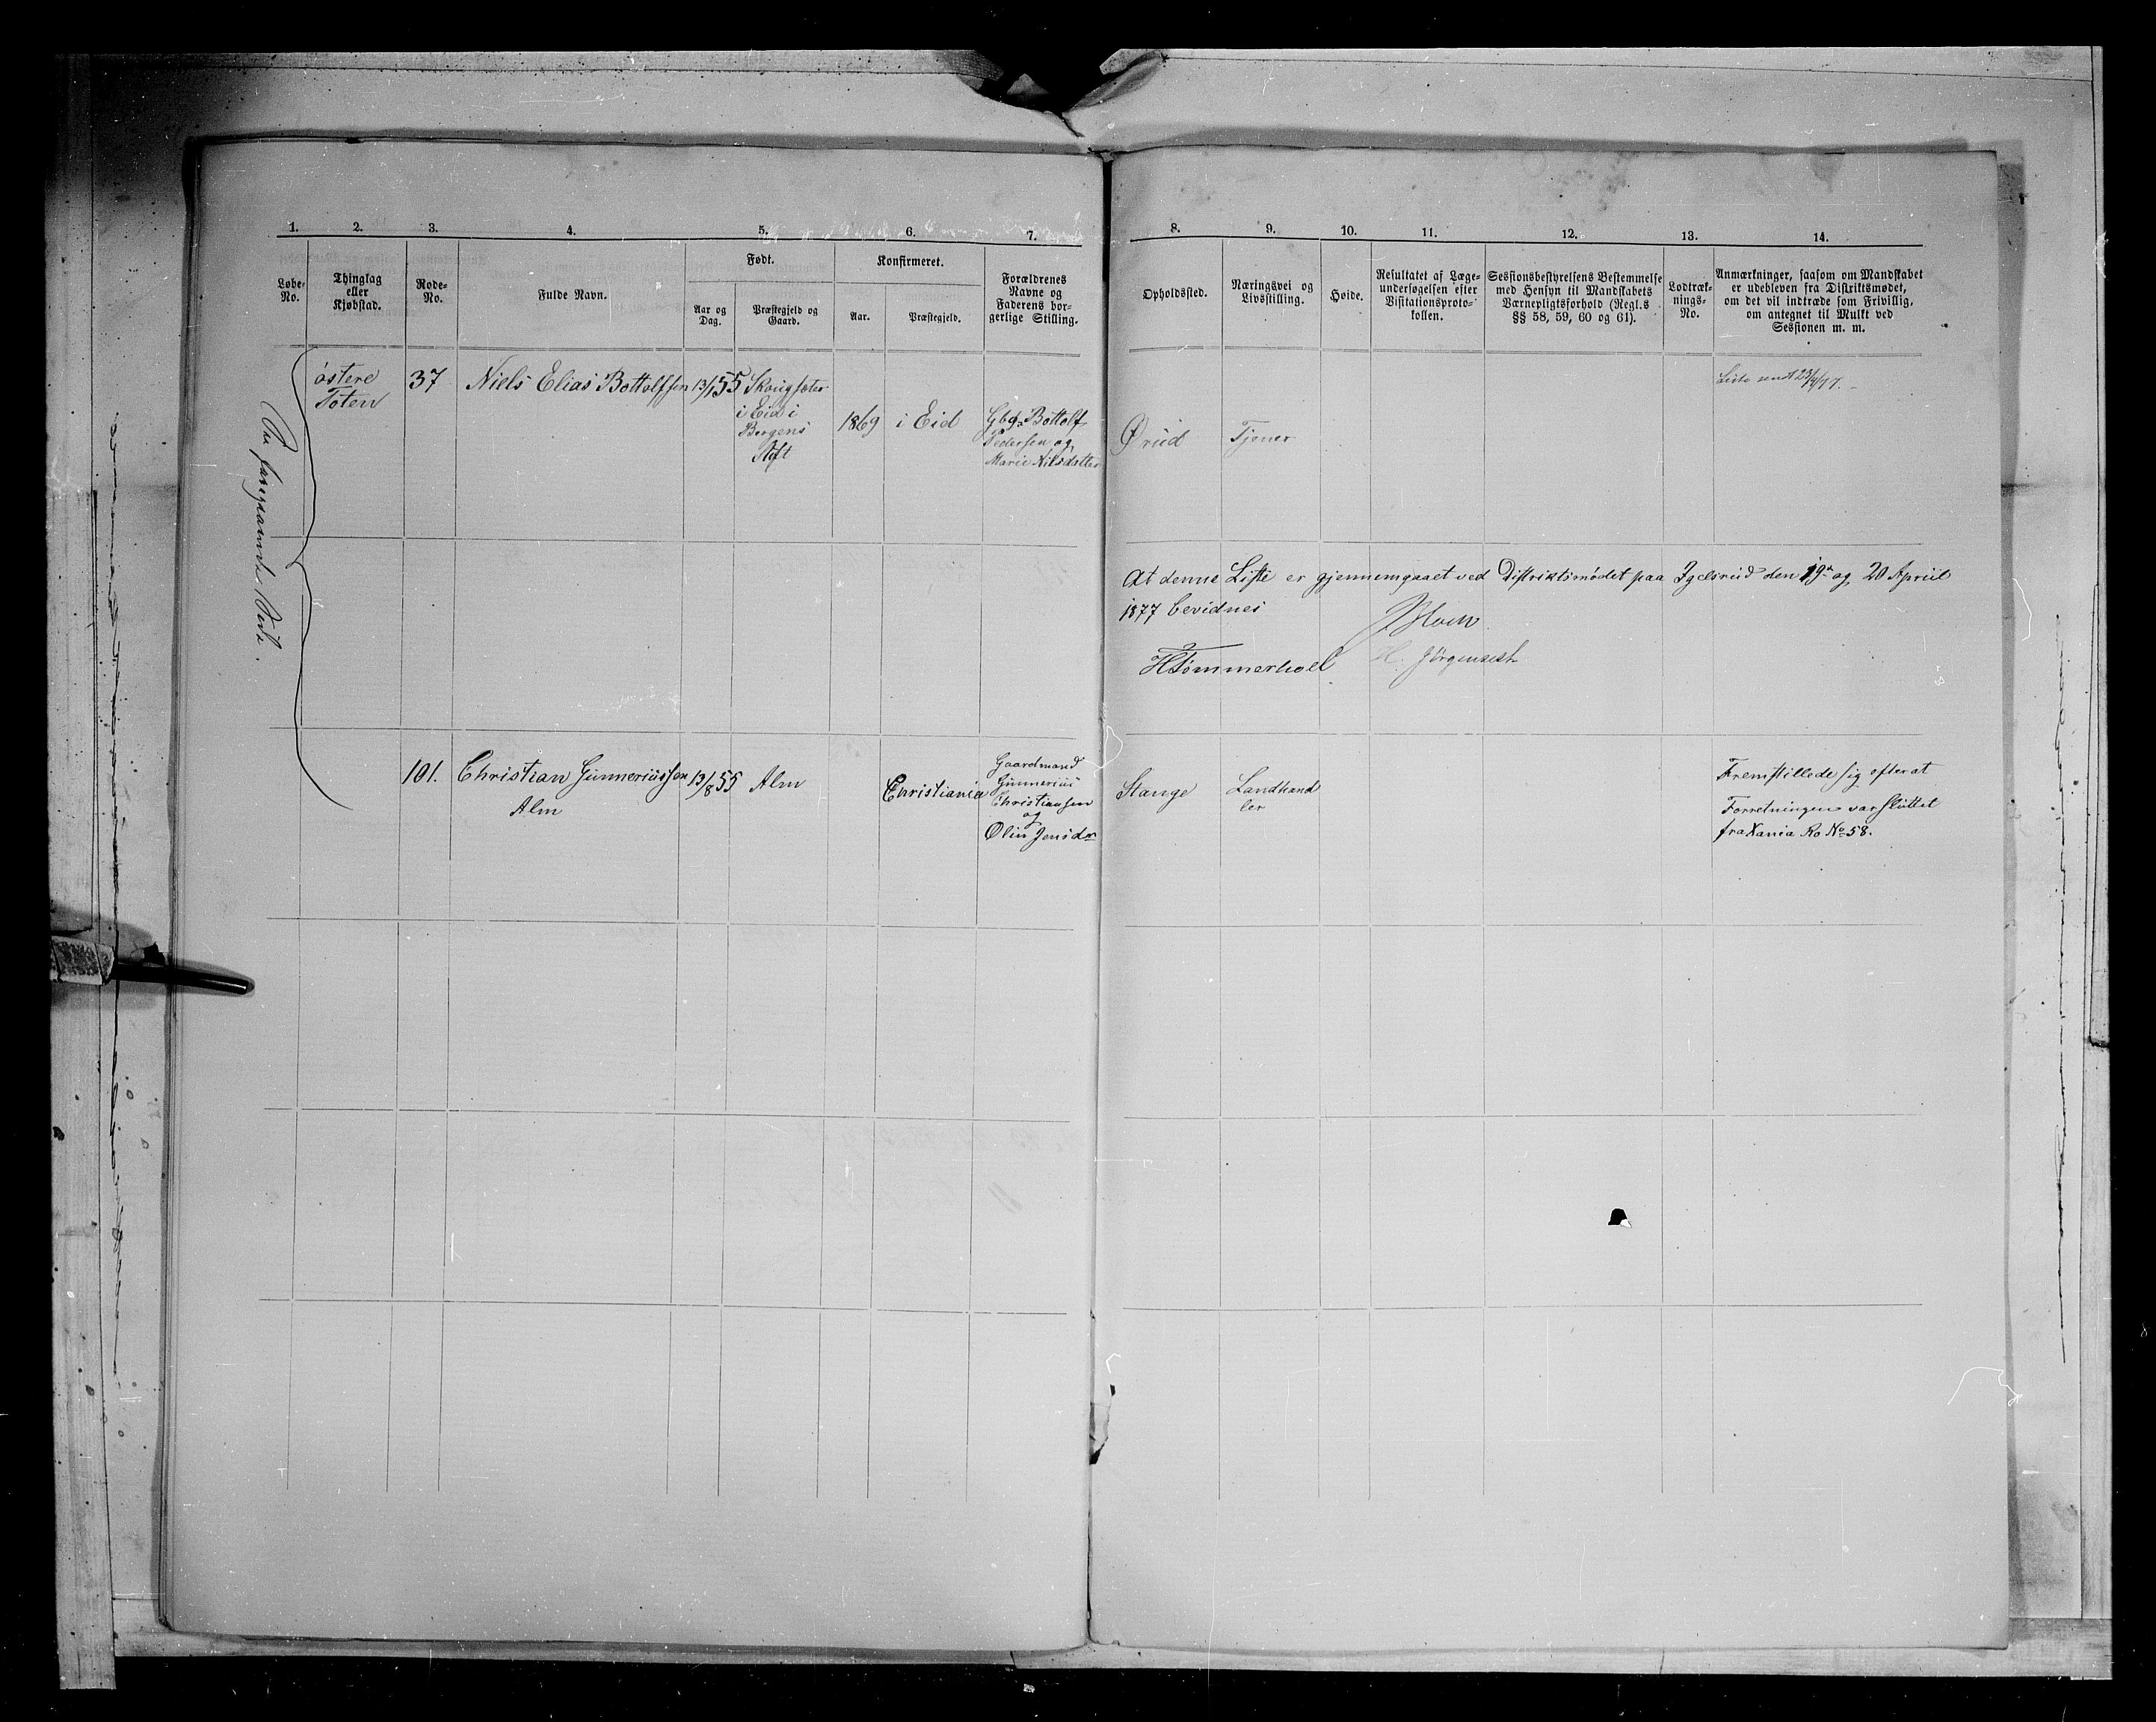 1. 2. 3. 4. 5. 6. 7.
Løbe-
No.
Thinglag
eller
Kjøbstad.
Rode-
No.
Fulde Navn.
Født.
Aar og
Dag.
Præstegjeld og
Gaard.
Konfirmeret.
Aar.
Præstegjeld.
Forældrenes
Navne og
Faderens bor-
gerlige Stilling.
østere
Toten
37
Niels Elias Bottolfsen
13/1 55
i Eid i
Bergens
Stift
1869
i Eid
Gbgr Bottolf
Pedersen og
Marie Nilsdatter
101.
Christian Gunneriussen
Alm
13/8 55
Alm
Christiania
Gaardmand
Gunnerius
Christiansen
og
Olin Jensdr
8. 9. 10. 11. 12. 13. 14.
Opholdssted.
Næringsvei og
Livsstilling.
Høide.
Resultatet af Læge-
undersøgelsen efter
Visitationsproto-
kollen.
Sessionsbestyrelsens Bestemmelse
med Hensyn til Mandskabets
Værnepligtsforhold (Regl.s
§§ 58, 59, 60 og 61).
Lodtræk-
nings-
No.
Anmærkninger, saasom om Mandskabet
er udebleven fra Distriktsmødet,
om det vil indtræde som Frivillig,
om antegnet til Mulkt ved
Sessionen m. m.
Ørud
Tjener
23/4/77.
At denne Liste er gjennemgaaet ved Distriktsmødet paa Igelsrud den 19de og 20 April
1877 bevidnes
H Tømmerhol
H. Jörgensen
Stange
Landhand
ler
Fremstillede sig efter at
Forretningen var sluttet
fra Xania Ro No 58.